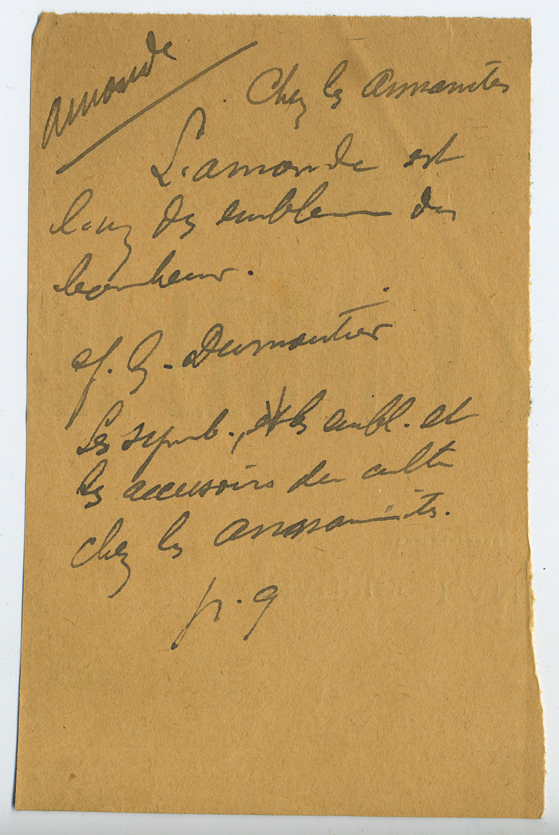 Amande
Chez les Annamites
L'amande est
l'un des emblemes du
bonheur.
cf. G. Dumoutier
Les symb., les embl. et
les accessoires du culte
chez les annamites.
p. 9